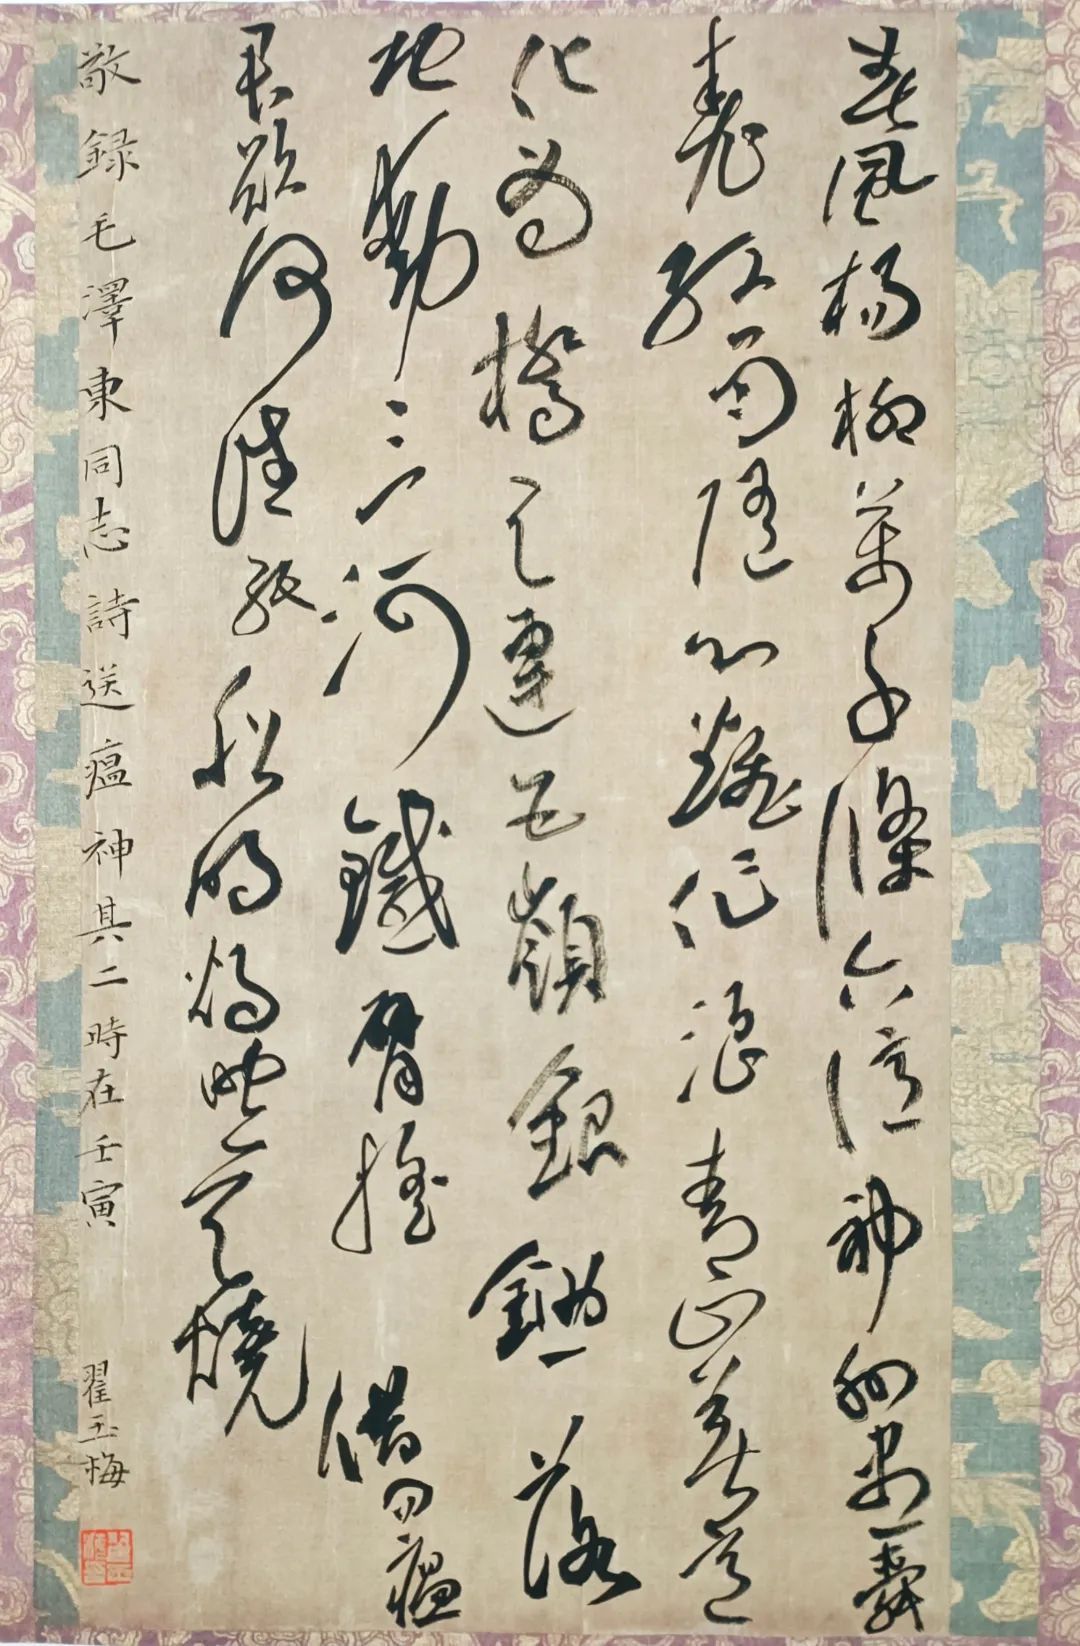 春風楊柳萬千條六億神州盡舜
堯紅雨隨心翻作浪青山着意
化為橋天連五嶺銀鋤落
地動三河鐵臂搖借問瘟
君欲何往紙船明燭照天燒
敬録毛澤東同志詩送瘟神其二時在壬寅 翟玉梅